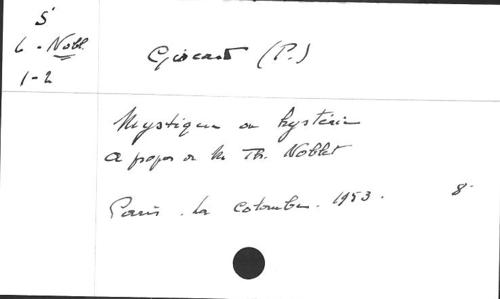 S
6 - Nobl.
1-2
Giscard (P.)
Mystique ou hystérie
A propos de M. Th. Noblet
Paris. La Colombe. 1953. 8°